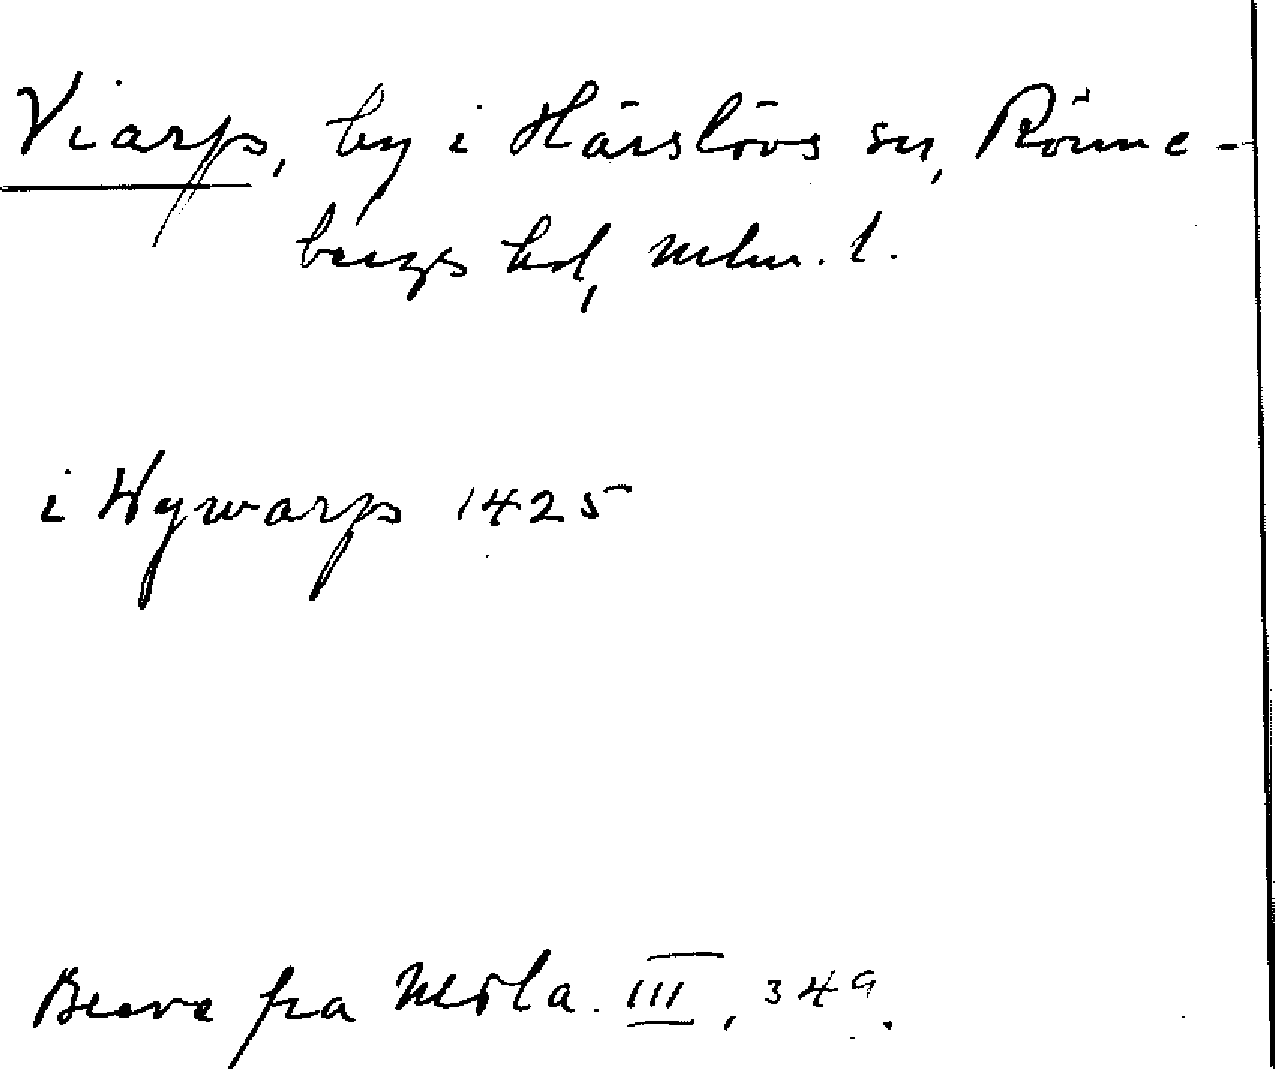 Viarp, by i Härslövs sn, Rönne-
bergs hd, Mlm. l.
i Wywarp 1425
Breve fra Msta. III, 349.